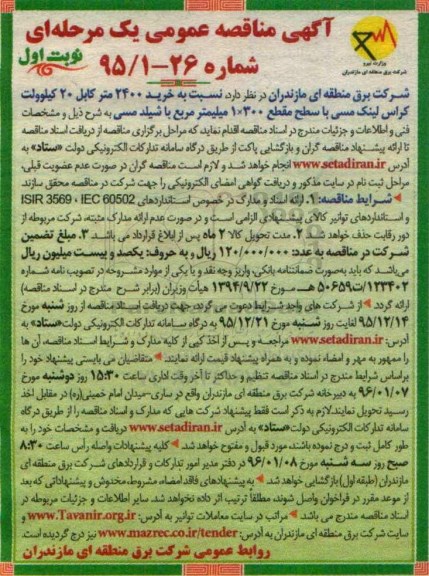 آگهی مناقصه عمومی یک مرحله‌ای
شماره ۲۶-۹۵/۱
نوبت اول
وزارت نیرو
شرکت برق منطقه ای مازندران
شرکت برق منطقه ای مازندران در نظر دارد، نسبت به خرید ۲۴۰۰ متر کابل ۲۰ کیلوولت
کراس لینک مسی با سطح مقطع ۳۰۰×۱ میلیمتر مربع با شیلد مسی به شرح ذیل و مشخصات
فنی و اطلاعات و جزئیات مندرج در اسناد مناقصه اقدام نماید که مراحل برگزاری مناقصه از دریافت اسناد مناقصه
تا ارائه پیشنهاد مناقصه گران و بازگشایی پاکت از طریق درگاه سامانه تدارکات الکترونیکی دولت «ستاد» به
آدرس www.setadiran.ir انجام خواهد شد و لازم است مناقصه گران در صورت عدم عضویت قبلی،
مراحل ثبت نام در سایت مذکور و دریافت گواهی امضای الکترونیکی را جهت شرکت در مناقصه محقق سازند
شرایط مناقصه: ۱. ارائه اسناد و مدارک در خصوص استانداردهای ISIR 3569 ، IEC 60502
و استانداردهای توانیر کالای پیشنهادی الزامی است و در صورت عدم ارائه مدارک مثبته، شرکت مربوطه از
دور رقابت حذف خواهد شد. ۲. مدت تحویل کالا ۲ ماه پس از ابلاغ قرارداد می باشد. ۳. مبلغ تضمین
شرکت در مناقصه به عدد: ۱۲۰/۰۰۰/۰۰۰ ریال و به حروف: یکصد و بیست میلیون ریال
می‌باشد که باید به‌صورت ضمانتنامه بانکی، واریز وجه نقد و یا یکی از موارد مشروحه در تصویب نامه شماره
۱۲۳۴۰۲/ت۵۰۶۵۹ هـ مورخ ۱۳۹۴/۹/۲۲ هیأت وزیران (برابر شرح مندرج در اسناد مناقصه)
ارائه گردد. از شرکت های واجد شرایط دعوت می گردد، جهت دریافت اسناد مناقصه از روز شنبه مورخ
۹۵/۱۲/۱۴ لغایت روز شنبه مورخ ۹۵/۱۲/۲۱ به درگاه سامانه تدارکات الکترونیکی دولت «ستاد» به
آدرس: www.setadiran.ir مراجعه و پس از اخذ کپی از کلیه مدارک و شرایط اسناد مناقصه، آن ها
را ممهور به مهر و امضاء نموده و به همراه پیشنهاد قیمت ارائه نمایند. متقاضیان می بایستی پیشنهاد خود را
براساس شرایط مندرج در اسناد مناقصه تنظیم و حداکثر تا آخر وقت اداری ساعت ۱۵:۳۰ روز دوشنبه مورخ
۹۶/۰۱/۰۷ به دبیرخانه شرکت برق منطقه ای مازندران واقع در ساری-میدان امام خمینی(ره) در مقابل اخذ
رسید تحویل نمایند. لازم به ذکر است فقط پیشنهاد شرکت هایی که مدارک و اسناد مناقصه را از طریق درگاه
سامانه تدارکات الکترونیکی دولت «ستاد» به آدرس www.setadiran.ir دریافت و مشخصات خود را به
طور کامل ثبت و درج نموده باشند، مورد قبول و مفتوح خواهد شد. کلیه پیشنهادات واصله رأس ساعت ۸:۳۰
صبح روز سه شنبه مورخ ۹۶/۰۱/۰۸ در دفتر مدیر امور تدارکات و قراردادهای شرکت برق منطقه ای
مازندران (طبقه اول) بازگشایی خواهد شد. به پیشنهادهای فاقد امضاء، مشروط، مخدوش و پیشنهاداتی که بعد
از موعد مقرر در فراخوان واصل شوند، مطلقا ترتیب اثر داده نخواهد شد. سایر اطلاعات و جزئیات مربوطه در
اسناد مناقصه مندرج می باشد. مراتب در سایت معاملات توانیر به آدرس: www.Tavanir.org.ir و
سایت شرکت برق منطقه ای مازندران به آدرس: www.mazrec.co.ir/tender نیز درج گردیده است.
روابط عمومی شرکت برق منطقه ای مازندران